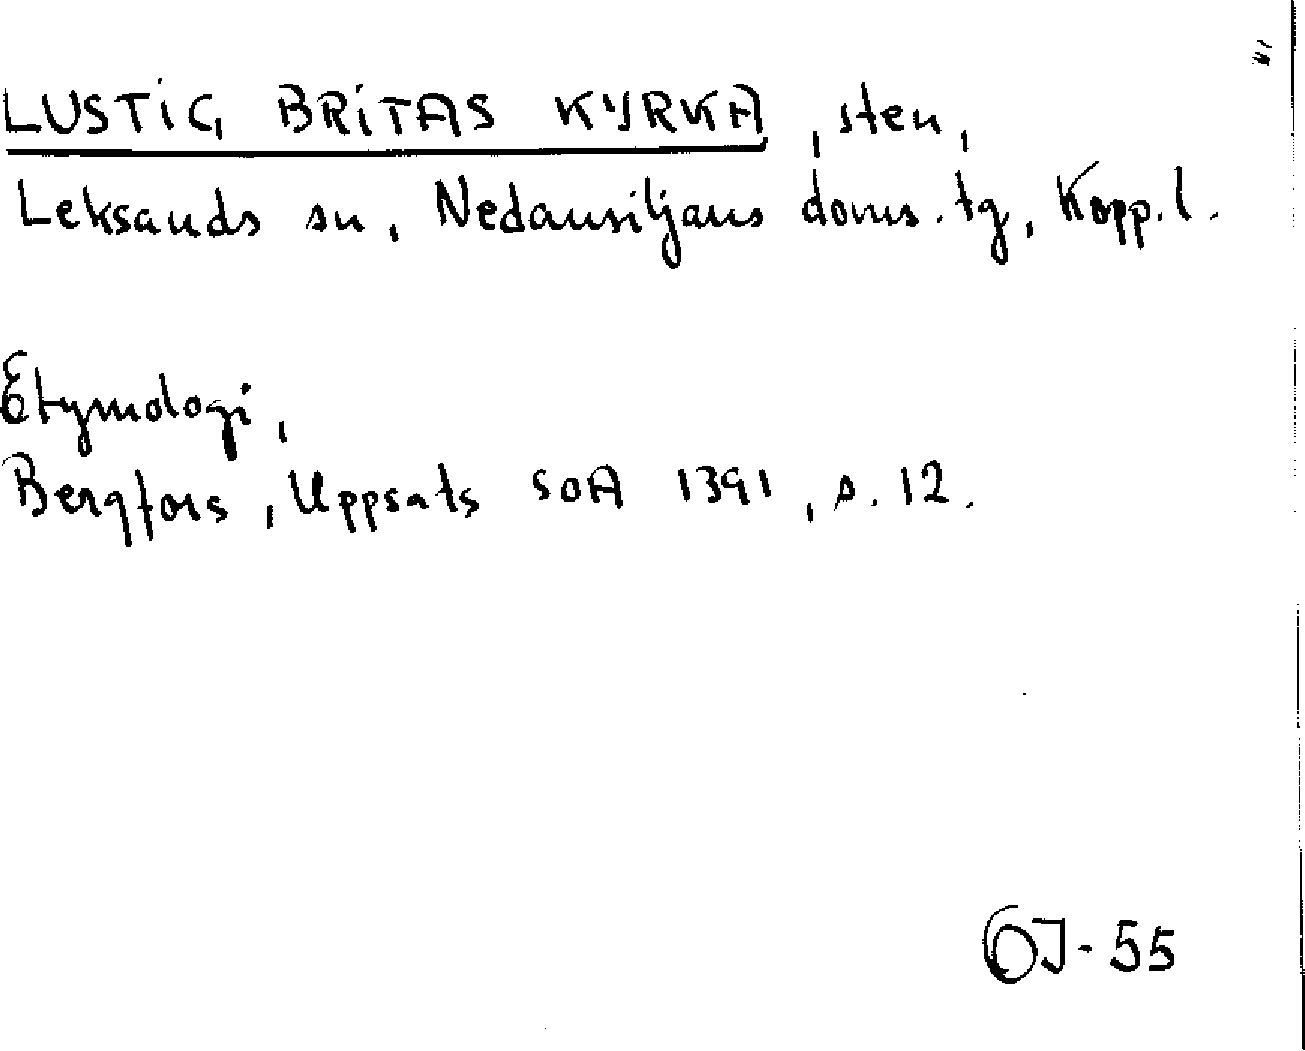 LUSTIG BRITAS KYRKA, sten,
Leksands sn, Nedansiljans doms. tg, Kopp. l.
Etymologi,
Bergfors, Uppsats SOA 1391, s. 12.
OJ-55